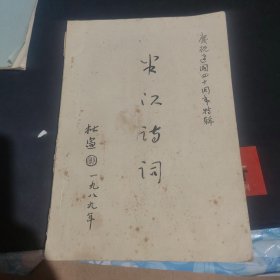 慶祝建国四十周年特辑
江诗词
杜
一九八九年